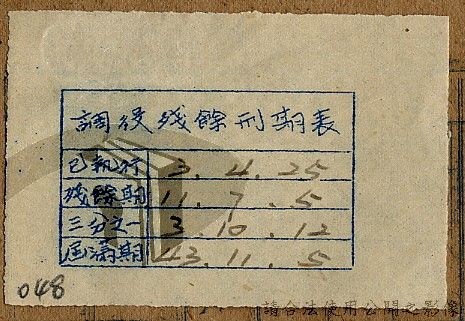 調役残餘刑期表
已執行 3.4.25
残餘期 11.7.5
三分之一 3.10.12
屆滿期 43.11.5
048
請合法使用公開之影像